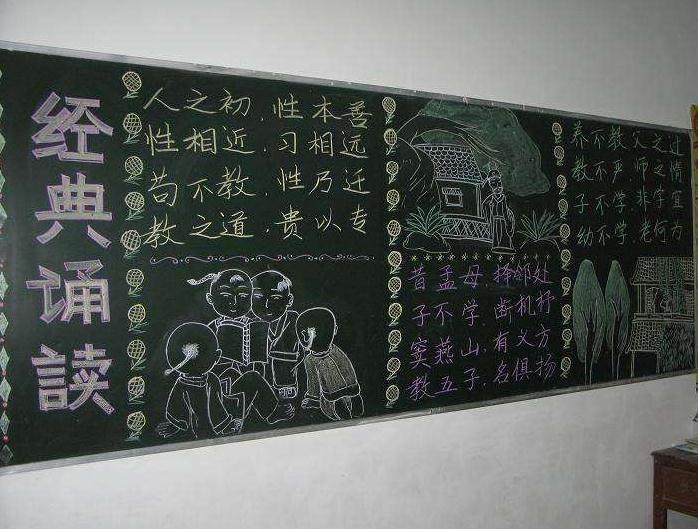 经典诵读
人之初,性本善
性相近,习相远
苟不教,性乃迁
教之道,贵以专
昔孟母,择邻处
子不学,断机杼
窦燕山,有义方
教五子,名俱扬
养不教,父之过
教不严,师之情
子不学,非宜
幼不学,老何